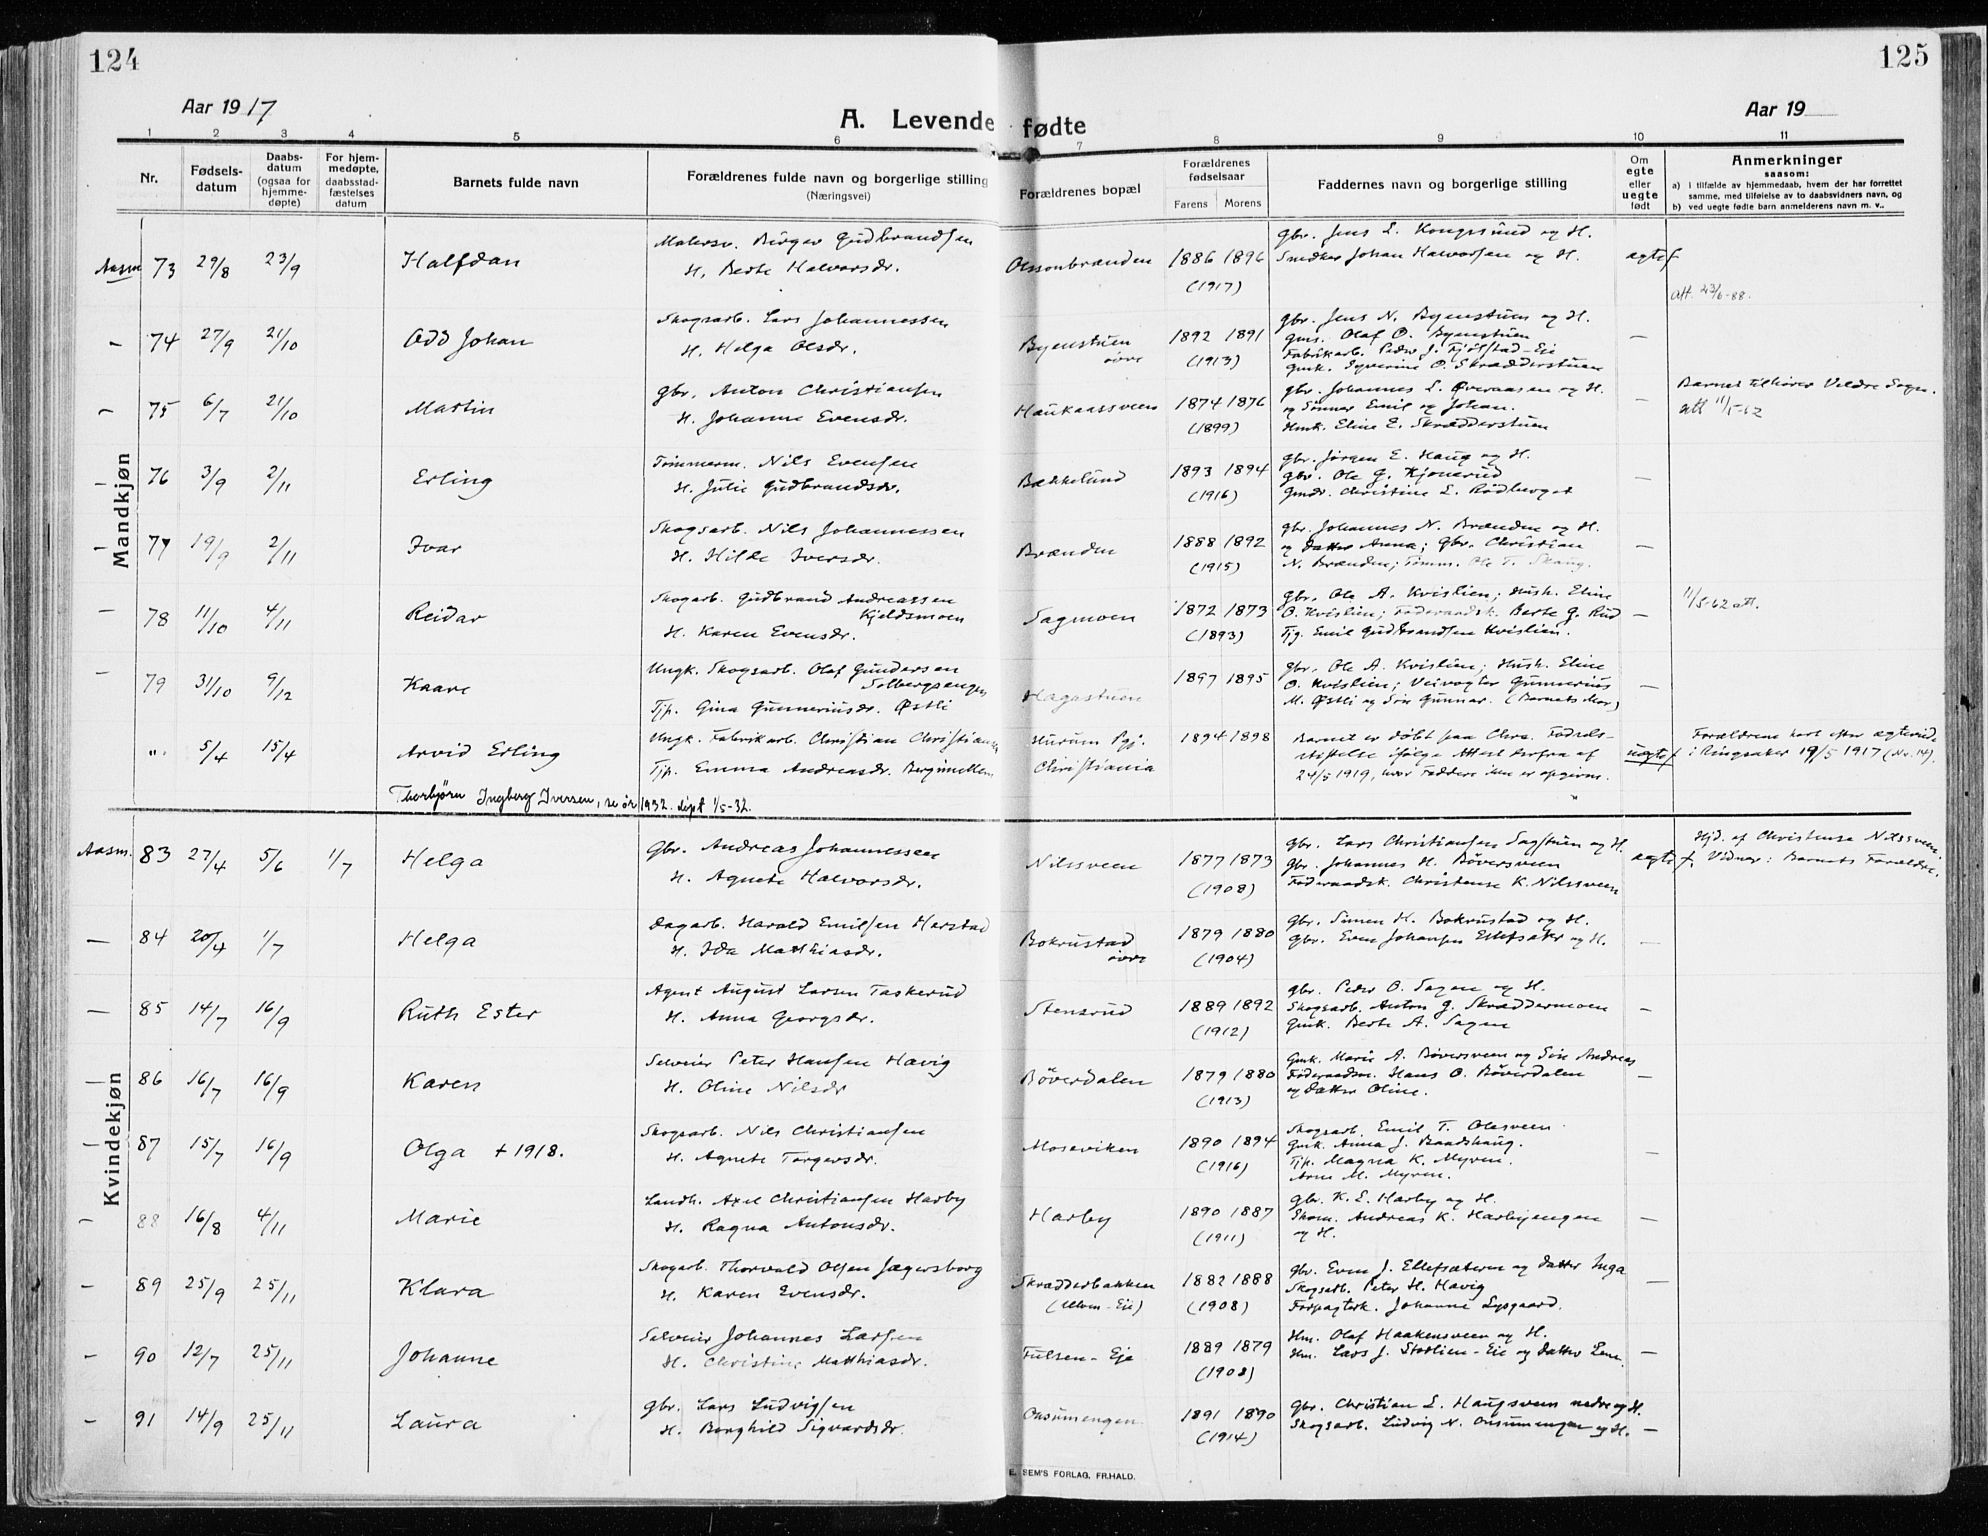 124
125
Aar 1917
A. Levende fødte
Aar 19
1 2 3 4 5 6 7 8 9 10 11
Nr.
Fødsels-datum
Daabs-datum (ogsaa for hjemme-døpte)
For hjem-medøpte, daabsstad-fæstelses datum
Barnets fulde navn
Forældrenes fulde navn og borgerlige stilling
(Næringsvei)
Forældrenes bopæl
Forældrenes fødselsaar
Farens Morens
Faddernes navn og borgerlige stilling
Om egte eller uegte født
Anmerkninger
saasom:
a) i tilfælde av hjemmedaab, hvem der har forrettet samme, med tilføielse av to daabsvidners navn, og
b) ved uegte fødte barn anmelderens navn m. v..
Mandkjøn
Aasm 73 29/8 23/9 Halfdan
Malersv. Birger Gudbrandsen
H. Berte Halvorsdr.
Olssonbrænden 1886 1896
(1917)
gbr. Jens L. Kongssund og H.
Snedker Johan Halvorsen og H.
egtef
att. 23/6-88.
— 74 27/9 21/10 Odd Johan
Skogsarb. Lars Johannessen
H. Helga Olsdr.
Byenstuen øvre 1892 1891
(1913)
gbr. Jens N. Byenstuen og H.
gms. Olaf O. Byenstuen
Fabrikarb. Peder J. Fjølstad-Eie
Gmk. Syverine O. Skrædderstuen
—
— 75 6/7 21/10 Martin
gbr. Anton Christiansen
H. Johanne Evensdr.
Haukaassveen 1874 1876
(1899)
gbr. Johannes L. Øveraasen og H.
og Sønner Emil og Johan.
Hmk. Eline E. Skrædderstuen
—
Barnet tilhører Veldre Sogn.
att 11/5-62
— 76 3/9 2/11 Erling
Tømmerm. Nils Evensen
H. Julie Gudbrandsdr.
Bækkelund 1893 1894
(1916)
gbr. Jørgen E. Haug og H.
gbr. Ole G. Kjonerud
Gmdr. Christine L. Rødberget
—
— 77 19/9 2/11 Ivar
Skogsarb. Nils Johannessen
H. Hilda Iversdr.
Brænden 1888 1892
(1915)
gbr. Johannes N. Brænden og H.
og Datter Anna; gbr. Christian
N. Brænden; Tømm. Ole T. Skaug.
—
— 78 11/10 4/11 Reidar
Skogarb. Gudbrand Andreassen
Kjeldsmoen
H. Karen Evensdr.
Sagmoen 1872 1873
(1893)
gbr. Ole A. Kvislien; Hush. Eline
O. Kvislien; Føderaadsk. Berte G. Rud
Tj. Emil Gudbrandsen Kvislien.
—
11/5-62 att.
— 79 31/10 9/12 Kaare
Ungk. Skogsarb. Olaf Gundersen
Solbergsengen
Tjp. Gina Gunneriusdr. Østli
Hagastuen 1897 1895
gbr. Ole A. Kvislien; Hush. Eline
O. Kvislien; Veivogter Gunnerius
M. Østli og Søn Gunnar. (Barnets Mor)
—
" 5/4 15/4 Arvid Erling
Ungk. Fabrikarb. Christian Christiansen
Tjp. Emma Andreasdr. Bergimellem
Hurum Pgj.
Christiania 1894 1898
Barnet er døbt paa Chra. Fødsels-
stiftelse ifølge Attest herfra af
24/5 1919, hvor Faddere ikke er opgivne.
uegtef
Forældrene har efter ægteviede
i Ringsaker 19/5 1917 (Nr. 14).
Thorbjørn Ingberg Iversen, se år 1932. døpt 1/5-32.
Kvindekjøn
Aasm. 83 27/4 5/6 1/7 Helga
Gbr. Andreas Johannessen
H. Agnete Halvorsdr.
Nilssveen 1877 1873
(1908)
gbr. Lars Christiansen Sagstuen og H.
gbr. Johannes H. Bøversveen
Føderaadsk. Christense K. Nilssveen
egtef.
Hjd. af Christense Nilssveen.
Vidner: Barnets Forældre.
— 84 20/4 1/7 Helga
Dagarb. Harald Emilsen Harstad
H. Ida Matthiasdr.
Bokrustad øvre 1879 1880
(1904)
gbr. Simen H. Bokrustad og H.
gbr. Even Johansen Ellefsæter og H.
—
— 85 14/7 16/9 Ruth Ester
Agent August Larsen Taskerud
H. Anna Georgsdr.
Stensrud 1889 1892
(1912)
gbr. Peder O. Sagen og H.
Skogsarb. Anton G. Skræddermoen
Gmk. Berte A. Sagen
—
— 86 16/7 16/9 Karen
Selveier Peter Hansen Hævig
H. Oline Nilsdr
Bøverdalen 1879 1880
(1913)
Gmk. Marie A. Bøversveen og Søn Andreas
Føderaadsm. Hans O. Bøverdalen
og Datter Oline.
—
— 87 15/7 16/9 Olga + 1918.
Skogsarb. Nils Christiansen
H. Agnete Torgersdr.
Moseviken 1890 1894
(1916)
Skogsarb. Emil T. Olasveen
Gmk. Anna J. Baadshaug.
Tjp. Magna K. Myren.
Arne M. Myren.
—
— 88 16/8 4/11 Marie
Landh. Axel Christiansen Harby
H. Ragna Antonsdr.
Harby 1890 1887
(1911)
gbr. K. E. Harby og H.
Skom. Andreas K. Harbyengen
og H.
—
— 89 25/9 25/11 Klara
Skogarb. Thorvald Olsen Jægersborg
H. Karen Evensdr.
Skrædderbakken
(Ulven-Eie) 1882 1888
(1908)
gbr. Even J. Ellefsæteren og Datter Inga
Skogsarb. Peter H. Hævig
Forpagterk. Johanne Lysgaard.
—
— 90 12/7 25/11 Johanne
Selveier Johannes Larsen
H. Christine Matthiasdr.
Fulsen-Eje 1889 1879
(1908)
Hm. Olaf Haakensveen og H.
Hm. Lars J. Stortlien-Eie og Datter Lene
—
— 91 14/9 25/11 Laura
gbr. Lars Ludvigsen
H. Borghild Sigvardsdr.
Onsumengen 1891 1890
(1914)
gbr. Christian L. Haugsveen nedre og H.
Skogsarb. Ludvig N. Onsumengen og H.
—
E. SEM'S FORLAG, FR.HALD.